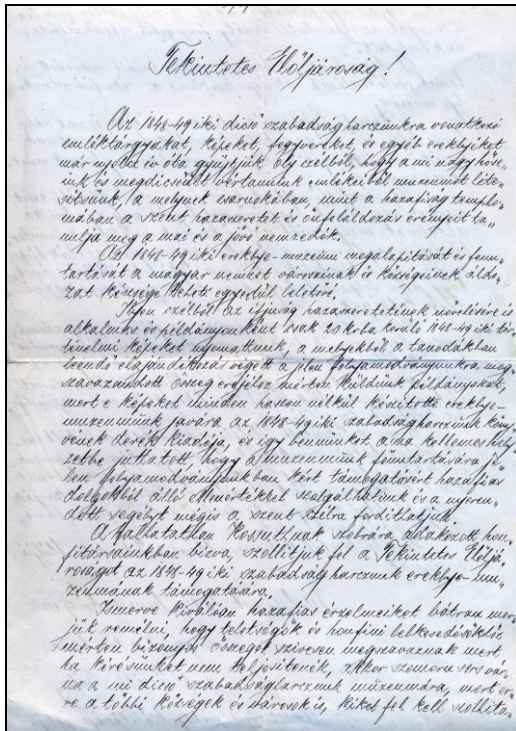 Tekintetes Előljáróság!
Az 1848-49iki dicső szabadságharczunkra vonatkozó
emléktárgyakat, képeket, fegyvereket és egyéb ereklyéket
már nyolcz év óta gyűjtjük oly czélból, hogy a mi nagy hőse-
ink és megdicsőült vértanuink emlékeiből muzeumot léte-
sítsünk, a melynek csarnokában, mint a hazafiság templo-
mában a szent hazaszeretet és önfeláldozás erényeit ta-
nulja meg a mai és a jövő nemzedék.
Az 1848-49iki ereklye-muzeum megalapítását és fenn-
tartását a magyar nemzet városainak és községeinek áldo-
zat készsége teheti egyedül lehetővé.
Ilyen czélból az ifjuság hazaszeretetének növelésére is
alkalmas és példányonként csak 20 krba kerülő 1848-49iki tör-
ténelmi képeket nyomattunk, a melyekből a tanodákban
leendő elajándékozás végett a jelen folyamodványunkra meg-
szavazandott összeg erejéhez mérten küldünk példányokat,
mert e képeket minden haszon nélkül készítette ereklye-
muzeumunk javára az 1848-49iki szabadságharczunk köny-
vének derék kiadója, és így bennünket abba a kellemes hely-
zetbe juttatott, hogy a muzeumunk fenntartására je-
len folyamodványunkban kért támogatásért hazafias
dolgokból álló ellenértékkel szolgálhatunk és a nyeren-
dett segélyt mégis a szent czélra fordíthatjuk.
A halhatatlan Kossuthnak szobrára adakozott hon-
fitársainkban bízva, szólítjuk fel a Tekintetes Elöljá-
róságot az 1848-49iki szabadságharczunk ereklye-mu-
zeumának támogatására.
Ismerve kiválóan hazafias érzelmeiket bátran mer-
jük remélni, hogy tehetségök és honfiui lelkesedésökhöz
mérten bizonyos összeget szívesen megszavaznak mert
ha kérésünket nem teljesítenék, akkor szomoru sors vár-
na a mi dicső szabadságharczunk múzeumára, mert er-
re a többi községek és városok is, kiket fel kell szólíta-